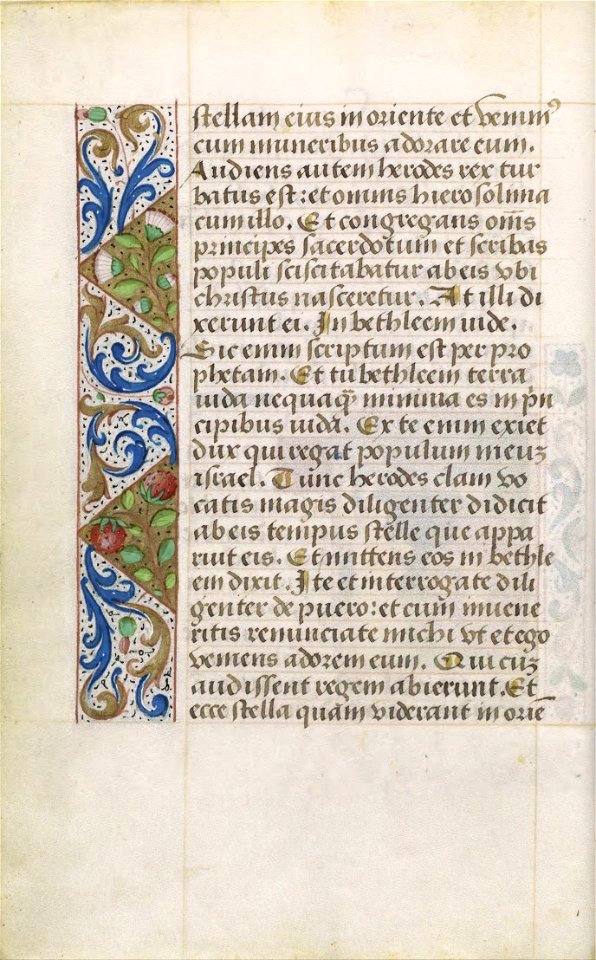 stellam eius in oriente et venim⁹
cum muneribus adorare eum.
Audiens autem herodes rex tur
batus est : et omnis hierosolima
cum illo. Et congregans om̅s
principes sacerdotum et scribas
populi sciscitabatur ab eis vbi
christus nasceretur. At illi di
xerunt ei. In bethleem iude.
Sic enim scriptum est per pro
phetam. Et tu bethleem terra
iuda nequaqȝ minima es in pͥn
cipibus iuda. Ex te enim exiet
dux qui regat populum meuz
israel. Tunc herodes clam vo
catis magis diligenter didicit
ab eis tempus stelle que appa
ruit eis. Et mittens eos in bethle
em dixit. Ite et interrogate dili
genter de puero: et cum inuene
ritis renunciate michi vt et ego
veniens adorem eum. Qui cuz
audissent regem abierunt. Et
ecce stella quam viderant in oriē